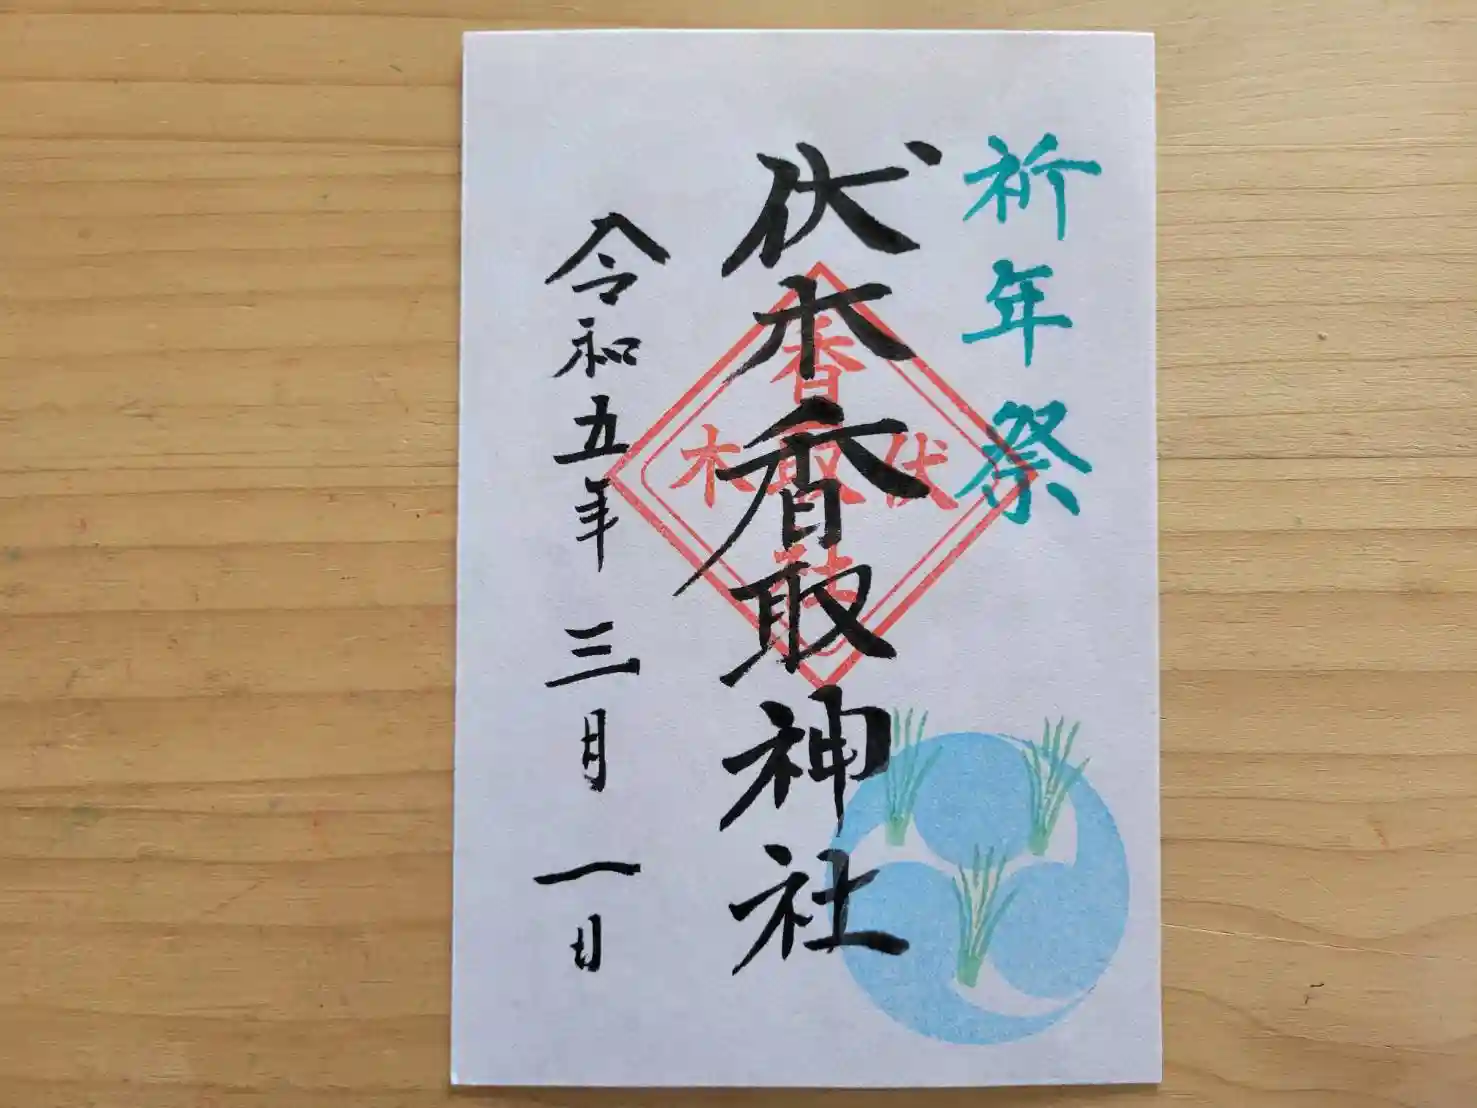 祈年祭
伏木香取神社
香
伏取木
社
令和五年三月一日